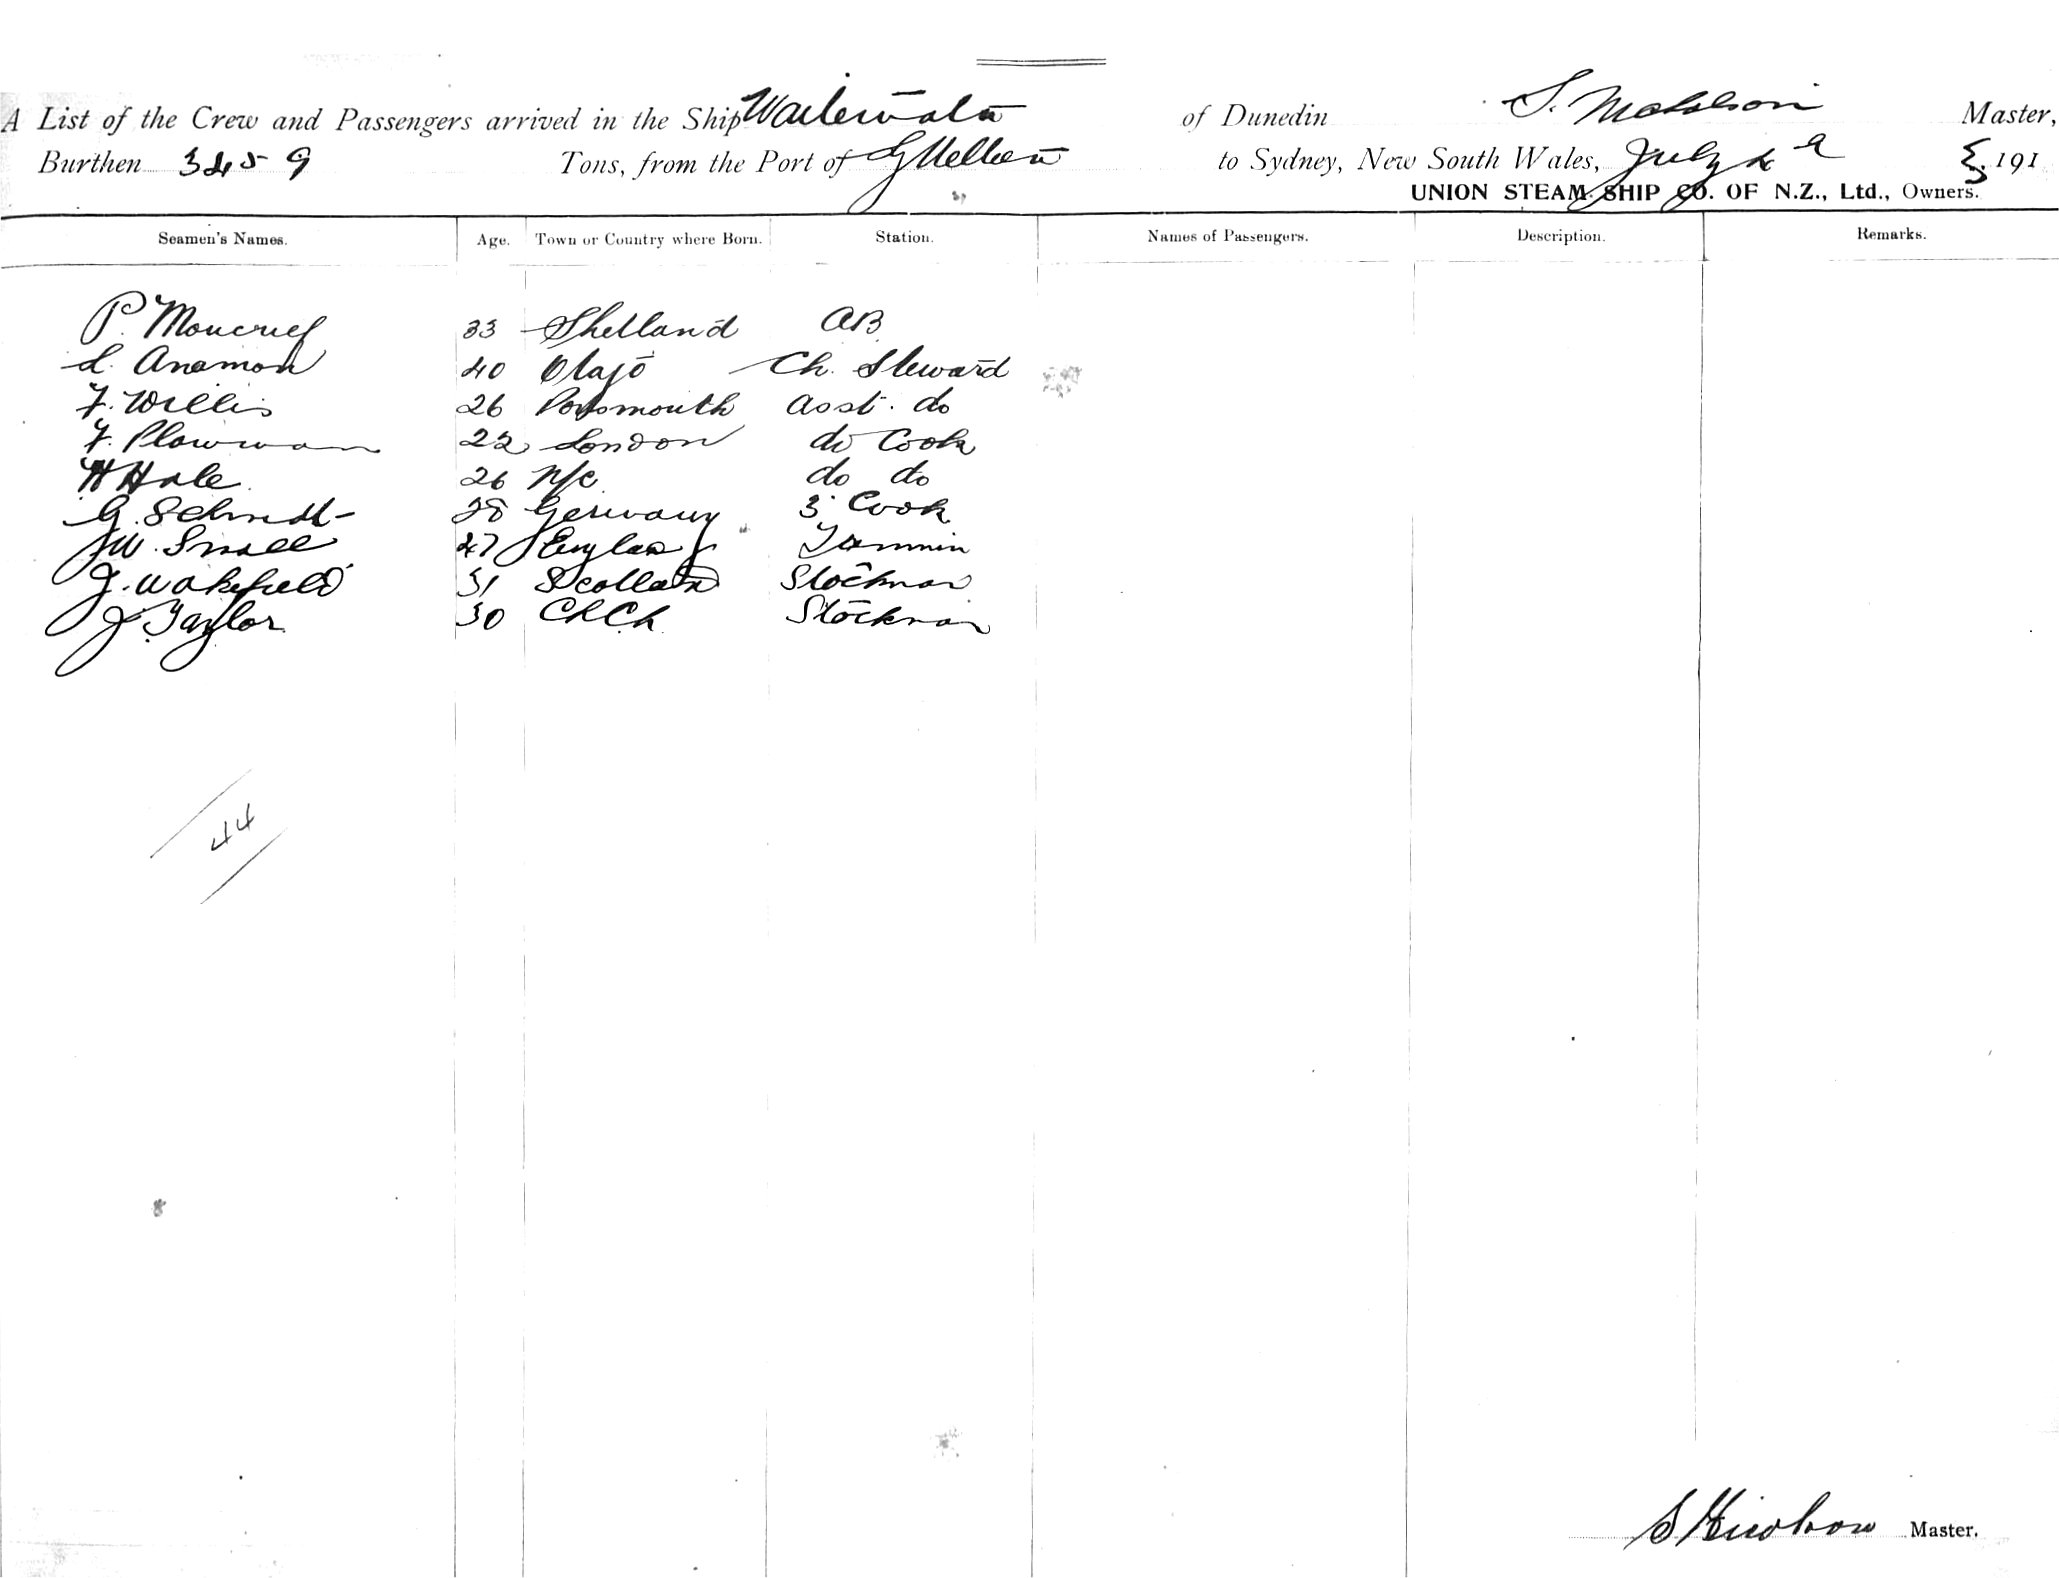 A List of the Crew and Passengers arrived in the Ship of Dunedin Master,
Burthen 3459 Tons, from the Port of to Sydney, New South Wales, July 191
UNION STEAM SHIP CO. OF N.Z., Ltd., Owners.
Seamen's Names. Age. Town or Country where Born. Station. Names of Passengers. Description. Remarks.
P. Moncrief 33 Shetland AB
40 Otago Ch. Steward
F. Willis 26 Portsmouth Asst. do
F. Plowman 22 London do Cook
H Hale 26 do do
G. Schmidt 28 Germany 3 Cook
JW. Small 47 England
J. Wakefield 31 Scotland Stockman
J Taylor 30 ChCh Stockman
44
Master.